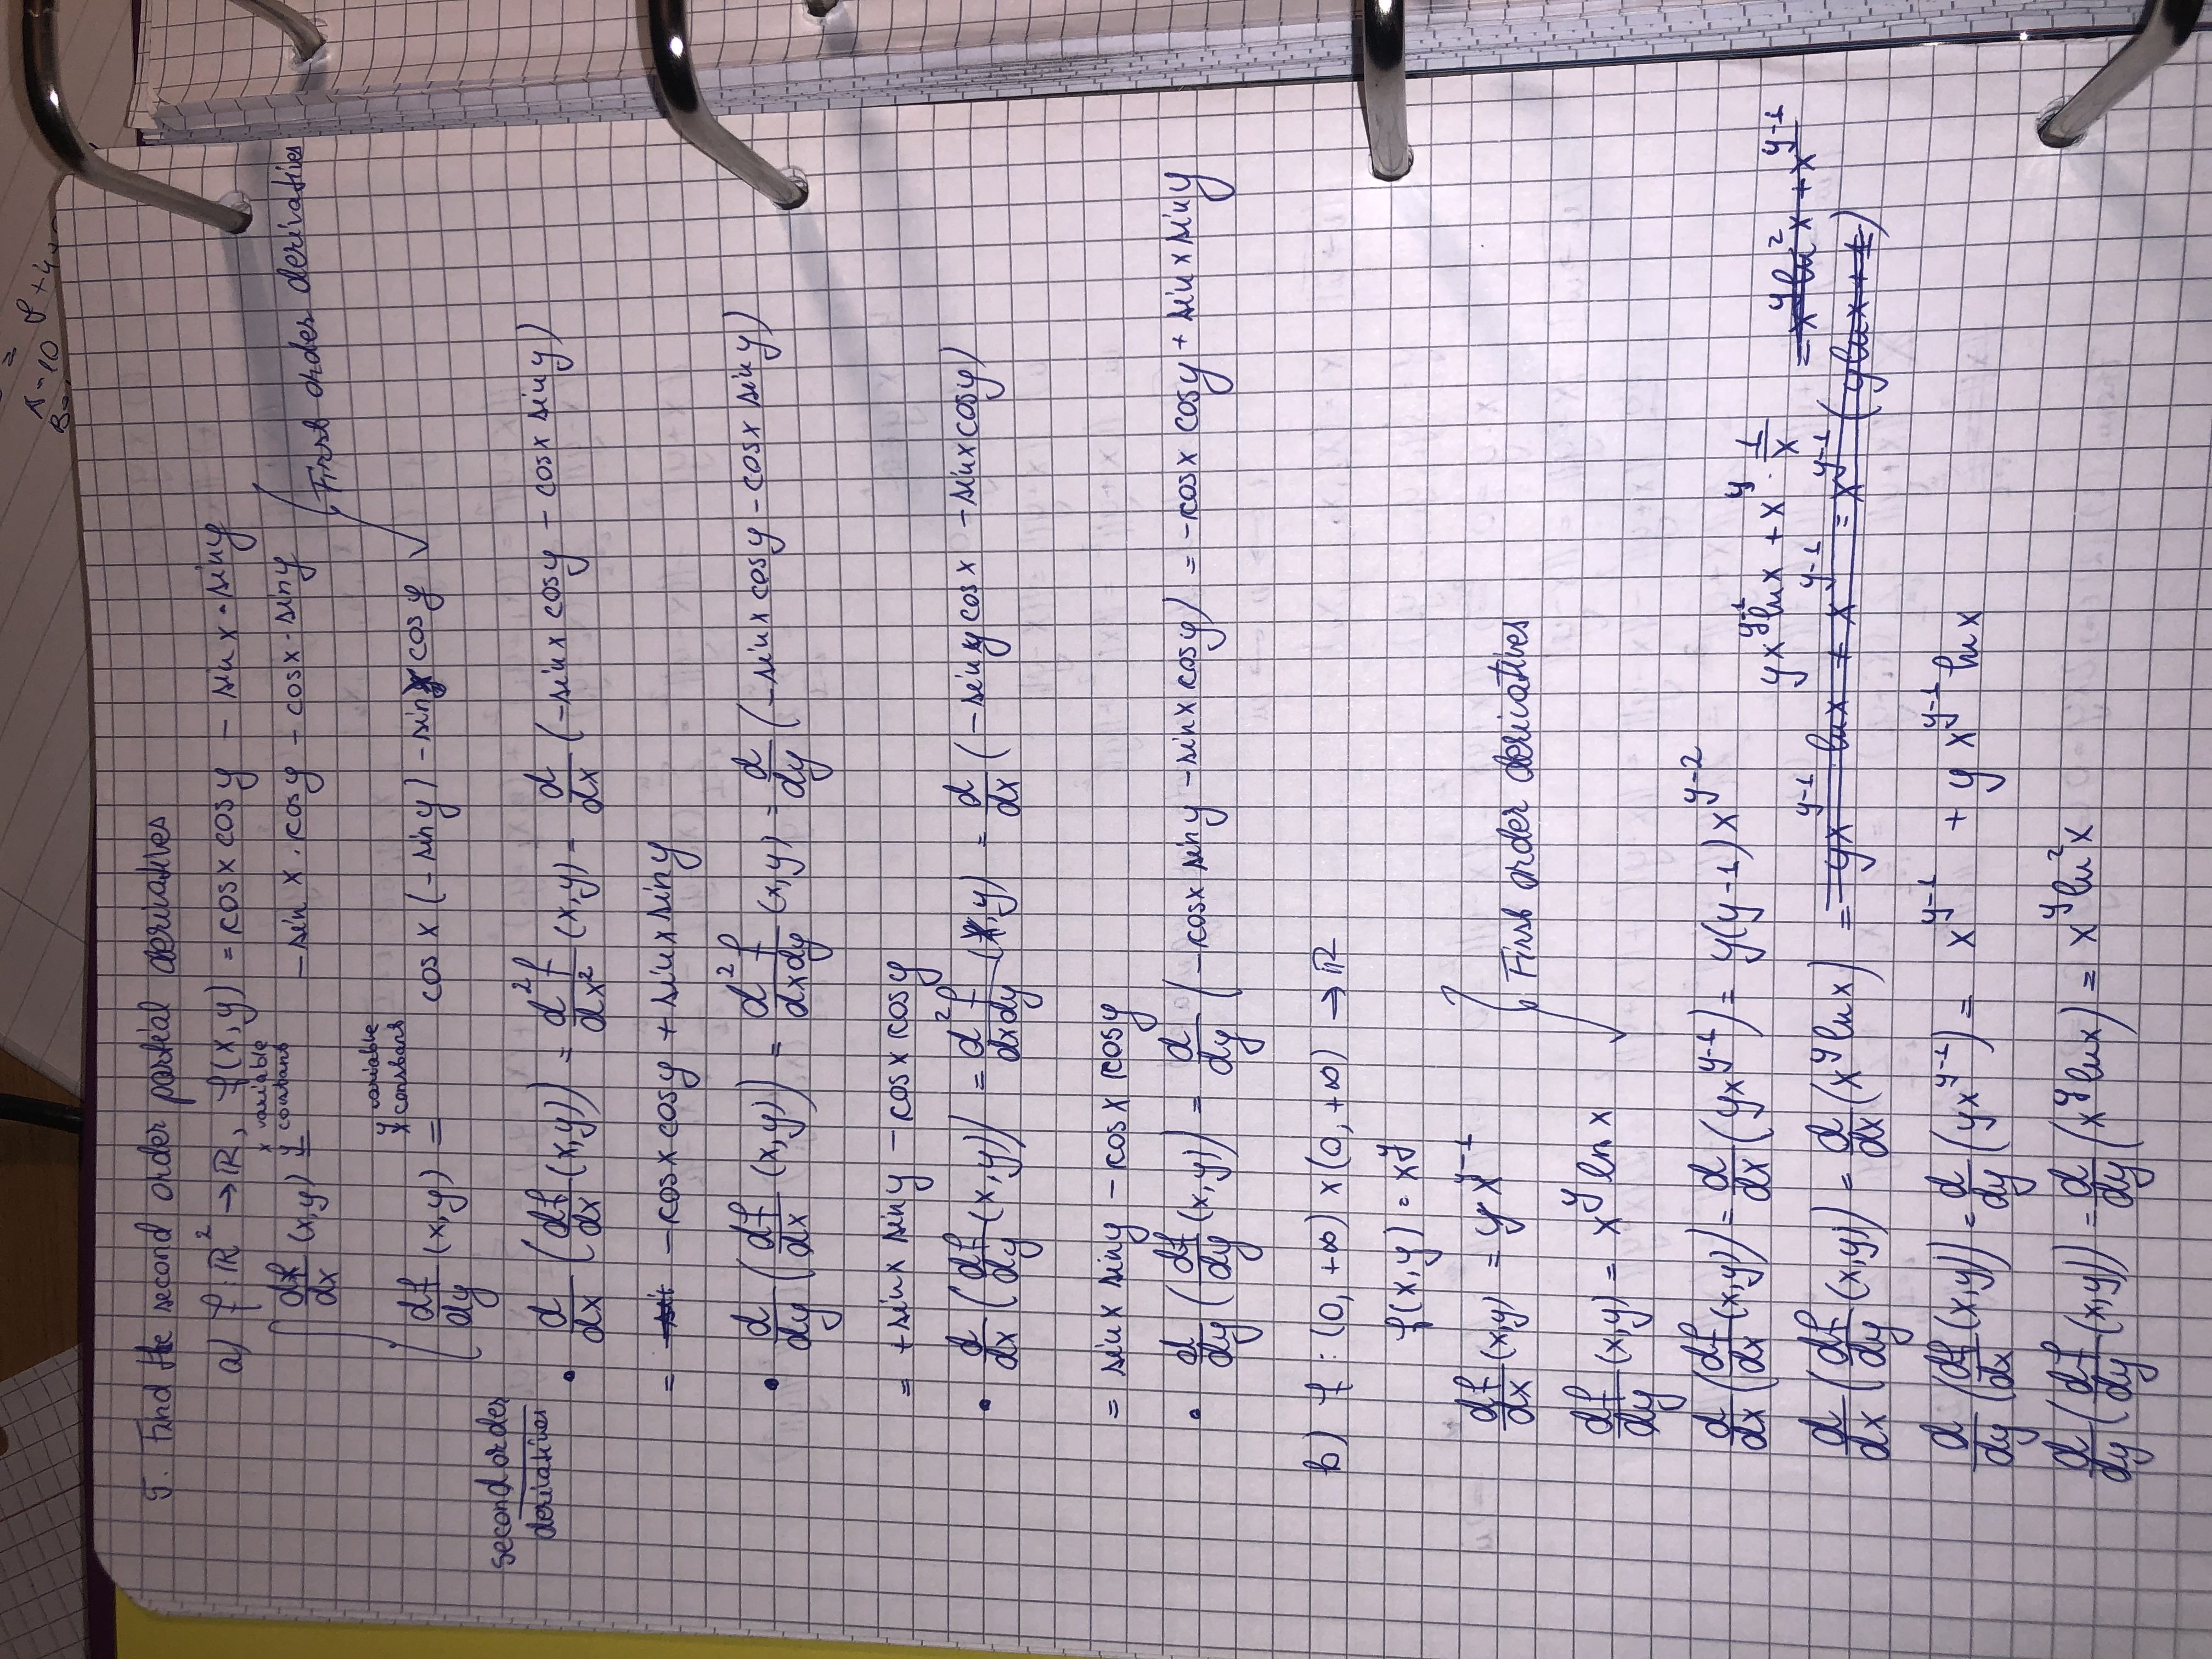 A=10 9+4
B=
5. Find the second order partial derivatives
a) f: ℝ² → ℝ, f(x,y) = cosx cosy - sinx·siny
df/dx (x,y) = x variable y constant -sin x · cosy - cosx·siny
First order derivatives
df/dy (x,y) = y variable x constant cos x (-siny) - sinx cosy
second order
derivatives
• d/dx (df/dx (x,y)) = d²f/dx² (x,y) = d/dx (-sinx cosy - cosx siny)
= -cosx cosy + sinx siny
• d/dy (df/dx (x,y)) = d²f/dxdy (x,y) = d/dy (-sinx cosy - cosx siny)
= +sinx siny - cosx cosy
• d/dx (df/dy (x,y)) = d²f/dxdy (x,y) = d/dx (-siny cosx - sinx cosy)
= sinx siny - cosx cosy
• d/dy (df/dy (x,y)) = d/dy (-cosx siny - sinx cosy) = -cosx cosy + sinx siny
b) f: (0, +∞) x (0, +∞) → ℝ
f(x,y) = x^y
df/dx (x,y) = y x^(y-1)
First order derivatives
df/dy (x,y) = x^y ln x
d/dx (df/dx (x,y)) = d/dx (yx^(y-1)) = y(y-1)x^(y-2)
yx^(y-1) lnx + x^y · 1/x = x^y ln²x + x^(y-1)
d/dx (df/dy (x,y)) = d/dx (x^y lnx) = yx^(y-1) · lnx + x^(y-1) = x^(y-1) (ylnx + 1)
d/dy (df/dx (x,y)) = d/dy (yx^(y-1)) = x^(y-1) + y x^(y-1) lnx
d/dy (df/dy (x,y)) = d/dy (x^y lnx) = x^y ln²x